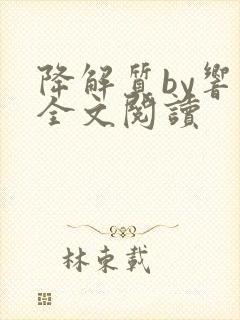 降解質by響
全文閱讀
林東載